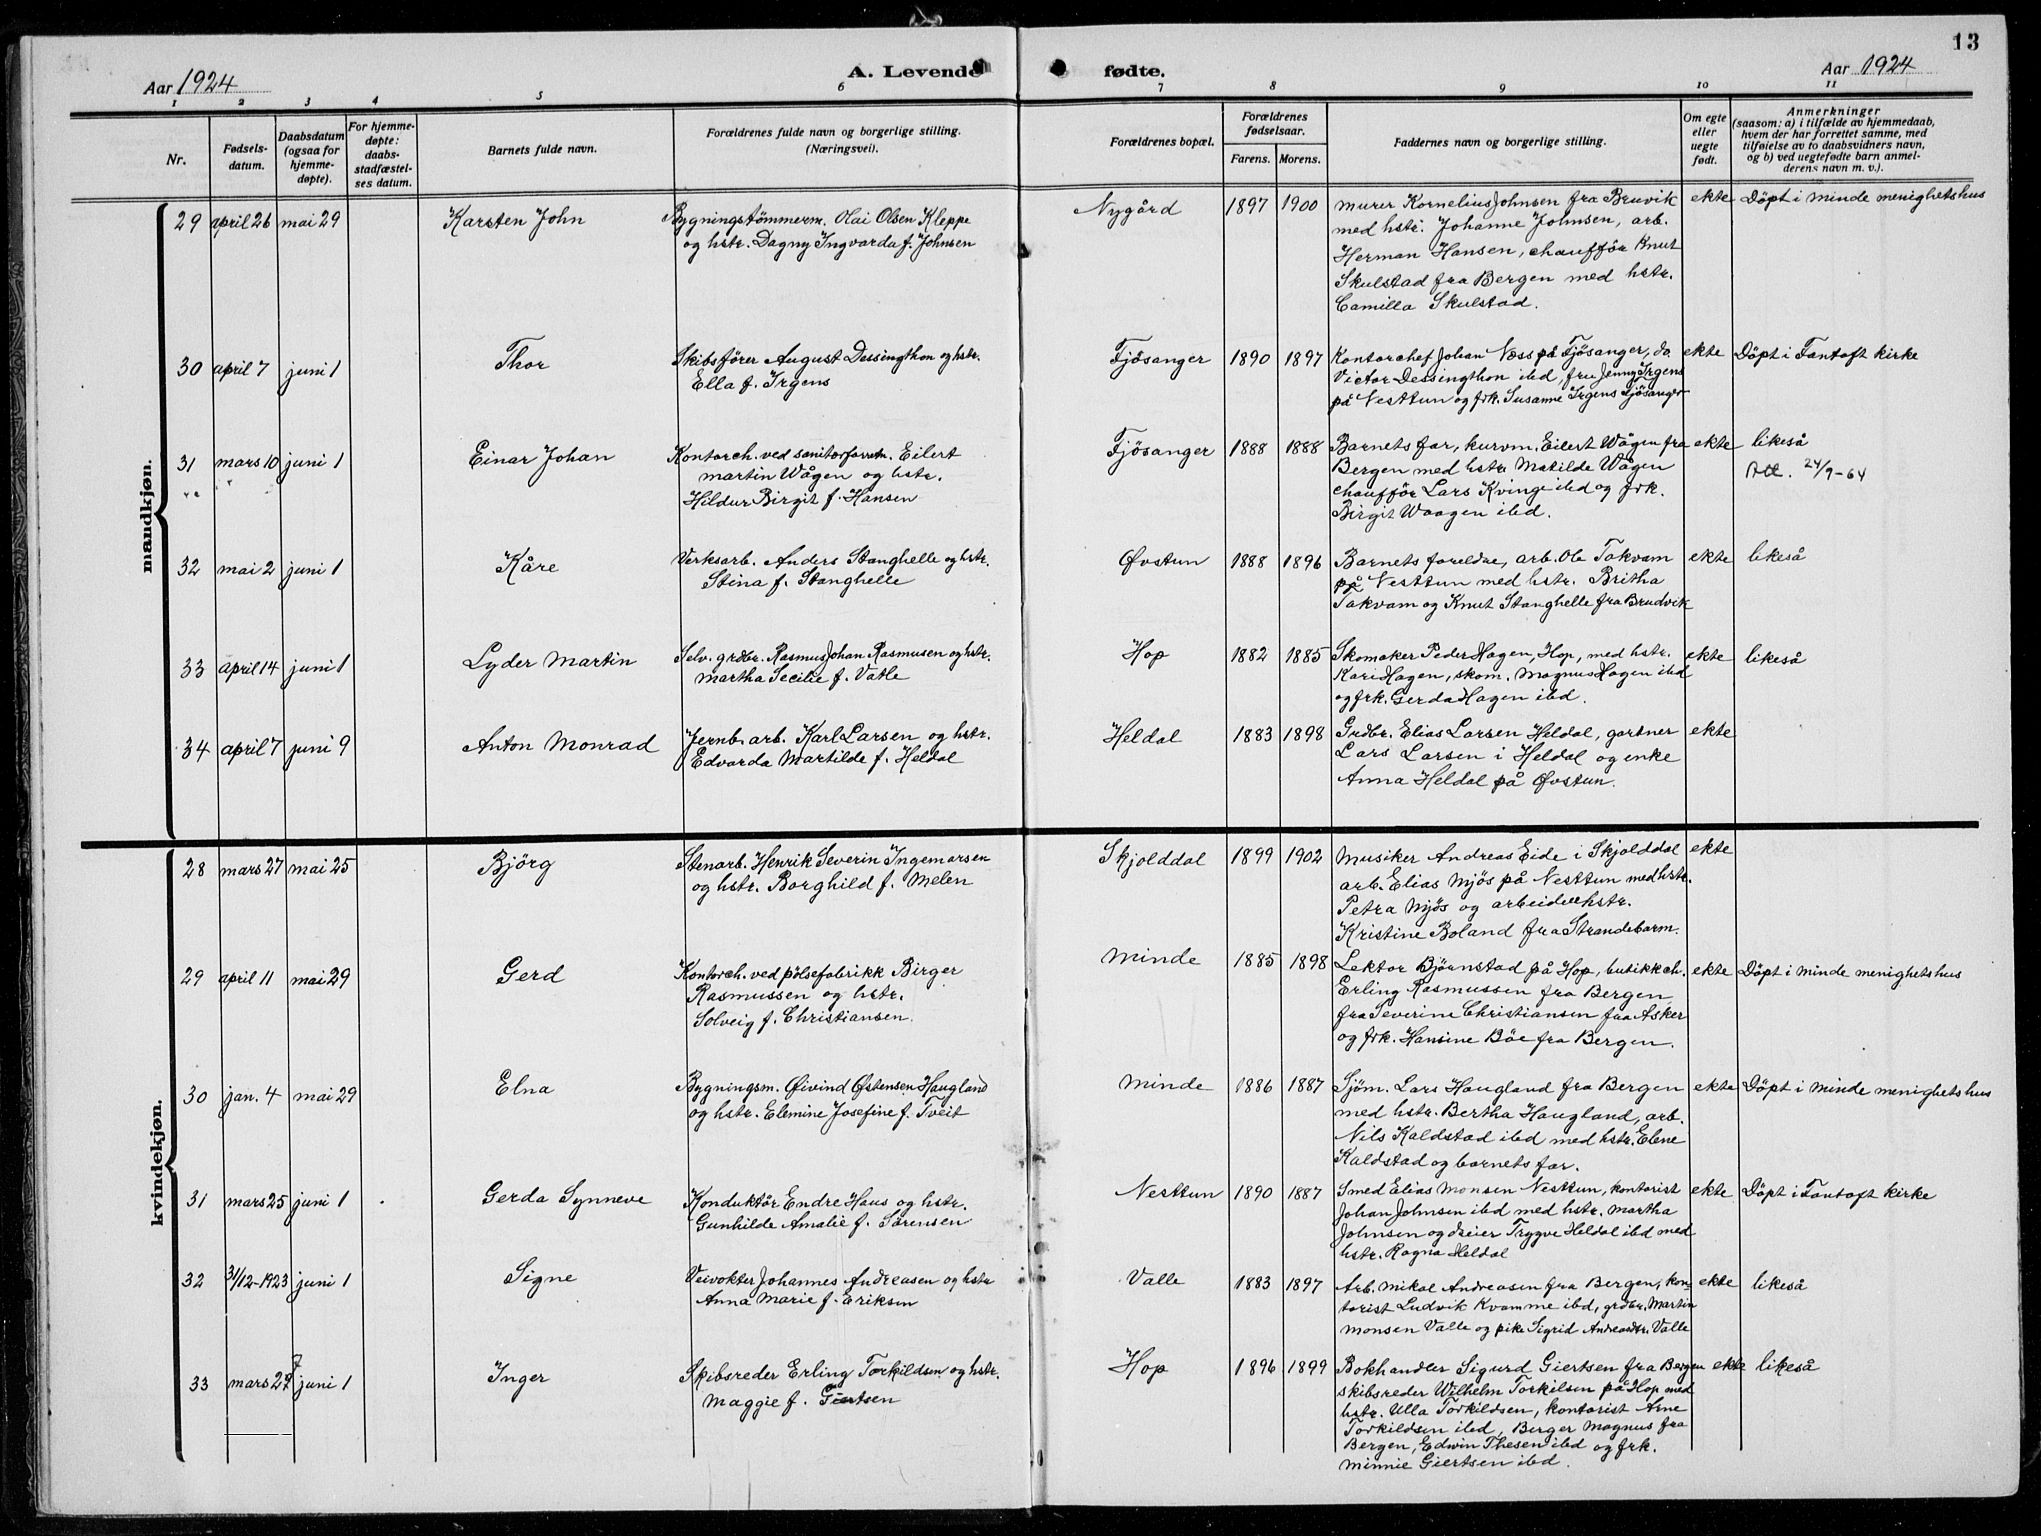 13
Aar 1924
A. Levende fødte.
Aar 1924
1 2 3 4 5 6 7 8 9 10 11
Nr.
Fødsels-
datum.
Daabsdatum
(ogsaa for
hjemme-
døpte).
For hjemme-
døpte:
daabs-
stadfæstel-
ses datum.
Barnets fulde navn.
Forældrenes fulde navn og borgerlige stilling.
(Næringsvei).
Forældrenes bopæl.
Forældrenes
fødselsaar.
Farens. Morens.
Faddernes navn og borgerlige stilling.
Om egte
eller
uegte
født.
Anmerkninger
(saasom: a) i tilfælde av hjemmedaab,
hvem der har forrettet samme, med
tilføielse av to daabsvidners navn,
og b) ved uegtefødte barn anmel-
derens navn m. v.).
mandkjøn.
29 april 26 mai 29 Karsten John
Bygningstömmerm. Olai Olsen Kleppe
og hstr. Dagny Ingvarda f. Johnsen
Nygård 1897 1900
murer Kornelius Johnsen fra Bruvik
med hstr. Johanne Johnsen, arb.
Herman Hansen, chaufför Knut
Skulstad fra Bergen med hstr.
Camilla Skulstad.
ekte Döpt i minde menighetshus
30 april 7 juni 1 Thor
Skibsförer August Dessingthon og hstr.
Ella f. Irgens
Fjösanger 1890 1897
Kontorchef Johan Næss på Fjösanger, do.
Victor Dessingthon ibd, fru Jenny Irgens
på Nesttun og frk. Susanne Irgens Fjösanger
ekte Döpt i Fantoft kirke
31 mars 10 juni 1 Einar Johan
Kontorch. ved sanitorforretn. Eilert
martin Wågen og hstr.
Hildur Birgit f. Hansen
Fjösanger 1888 1888
Barnets far, kurvm. Eilert Wågen fra
Bergen med hstr. Matilde Wågen
chaufför Lars Kvinge ibd og frk.
Birgit Waagen ibd.
ekte likeså
Att. 24/9-64
32 mai 2 juni 1 Kåre
Verksarb. Anders Stanghelle og hstr.
Stina f. Stanghelle
Øvstun 1888 1896
Barnets foreldre, arb. Ole Takvam
på Nesttun med hstr. Britha
Takvam og Knut Stanghelle fra Brudvik
ekte likeså
33 april 14 juni 1 Lyder Martin
Selv. grdbr. Rasmus Johan Rasmusen og hstr.
martha Secilie f. Vatle
Hop 1882 1885
Skomaker Peder Hagen, Hop, med hstr.
Kari Hagen, skom. Magnus Hagen ibd
og frk. Gerda Hagen ibd.
ekte likeså
34 april 7 juni 9 Anton Monrad
Jernb. arb. Karl Larsen og hstr.
Edvarda Martilde f. Heldal
Heldal 1883 1898
Grdbr. Elias Larsen Heldal, gartner
Lars Larsen i Heldal og enke
Anna Heldal på Øvstun.
ekte
kvindekjøn.
28 mars 27 mai 25 Björg
Stenarb. Henrik Severin Ingemarsen
og hstr. Borghild f. Melen
Skjolddal 1899 1902
Musiker Andreas Eide i Skjolddal
arb. Elias Mjös på Nesttun med hstr.
Petra Mjös og arbeiderhstr.
Kristine Boland fra Strandebarm.
ekte
29 april 11 mai 29 Gerd
Kontorch. ved pölsefabrikk Birger
Rasmussen og hstr.
Solveig f. Christiansen.
Minde 1885 1898
Lektor Bjørnstad på Hop, butikkch.
Erling Rasmussen fra Bergen,
fra Severine Christiansen fra Asker
og frk. Hansine Böe fra Bergen.
ekte Döpt i minde menighetshus
30 jan. 4 mai 29 Elna
Bygningsm. Øivind Østensen Haugland
og hstr. Elemine Josefine f. Tveit
Minde 1886 1887
Sjöm. Lars Haugland fra Bergen
med hstr. Bertha Haugland, arb.
Nils Kaldstad ibd med hstr. Elene
Kaldstad og barnets far.
ekte Döpt i minde menighetshus
31 mars 25 juni 1 Gerda Synneve
Konduktör Endre Haus og hstr.
Gunhilde Amalie f. Sörensen
Nesttun 1890 1887
Smed Elias Monsen Nesttun, kontorist
Johan Johnsen ibd med hstr. Martha
Johnsen og dreier Trygve Heldal ibd med
hstr. Ragna Heldal
ekte Döpt i Fantoft kirke
32 31/12-1923 juni 1 Signe
Veivokter Johannes Andreasen og hstr
Anna Marie f. Eriksen
Valle 1883 1897
Arb. Mikal Andreasen fra Bergen, kon-
torist Ludvik Kvamme ibd, grdbr. Martin
Monsen Valle og pike Sigrid Andreasdtr. Valle
ekte likeså
33 mars 27 juni 1 Inger
Skibsreder Erling Torkildsen og hstr.
Maggie f. Giertsen
Hop 1896 1899
Bokhandler Sigurd Giertsen fra Bergen
skibsreder Wilhelm Torkilsen på Hop med
hstr. Ulla Torkildsen, kontorist Arne
Torkildsen ibd, Berger Magnus fra
Bergen, Edwin Thesen ibd og frk.
Minnie Giertsen ibd.
ekte likeså